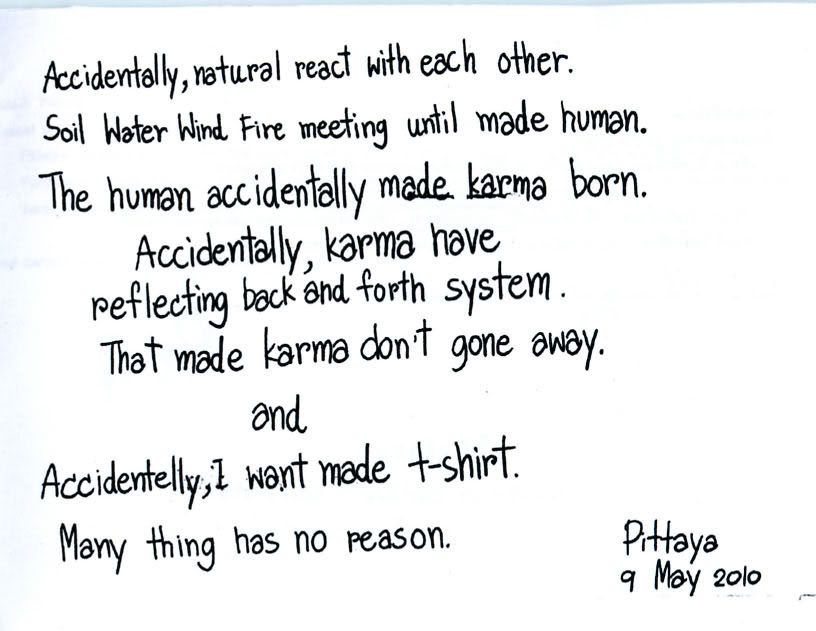 Accidentally, natural react with each other.
Soil Water Wind Fire meeting until made human.
The human accidentally made karma born.
Accidentally, karma have
reflecting back and forth system.
That made karma don't gone away.
and
Accidentelly, I want made t-shirt.
Many thing has no reason.
Pittaya
9 May 2010